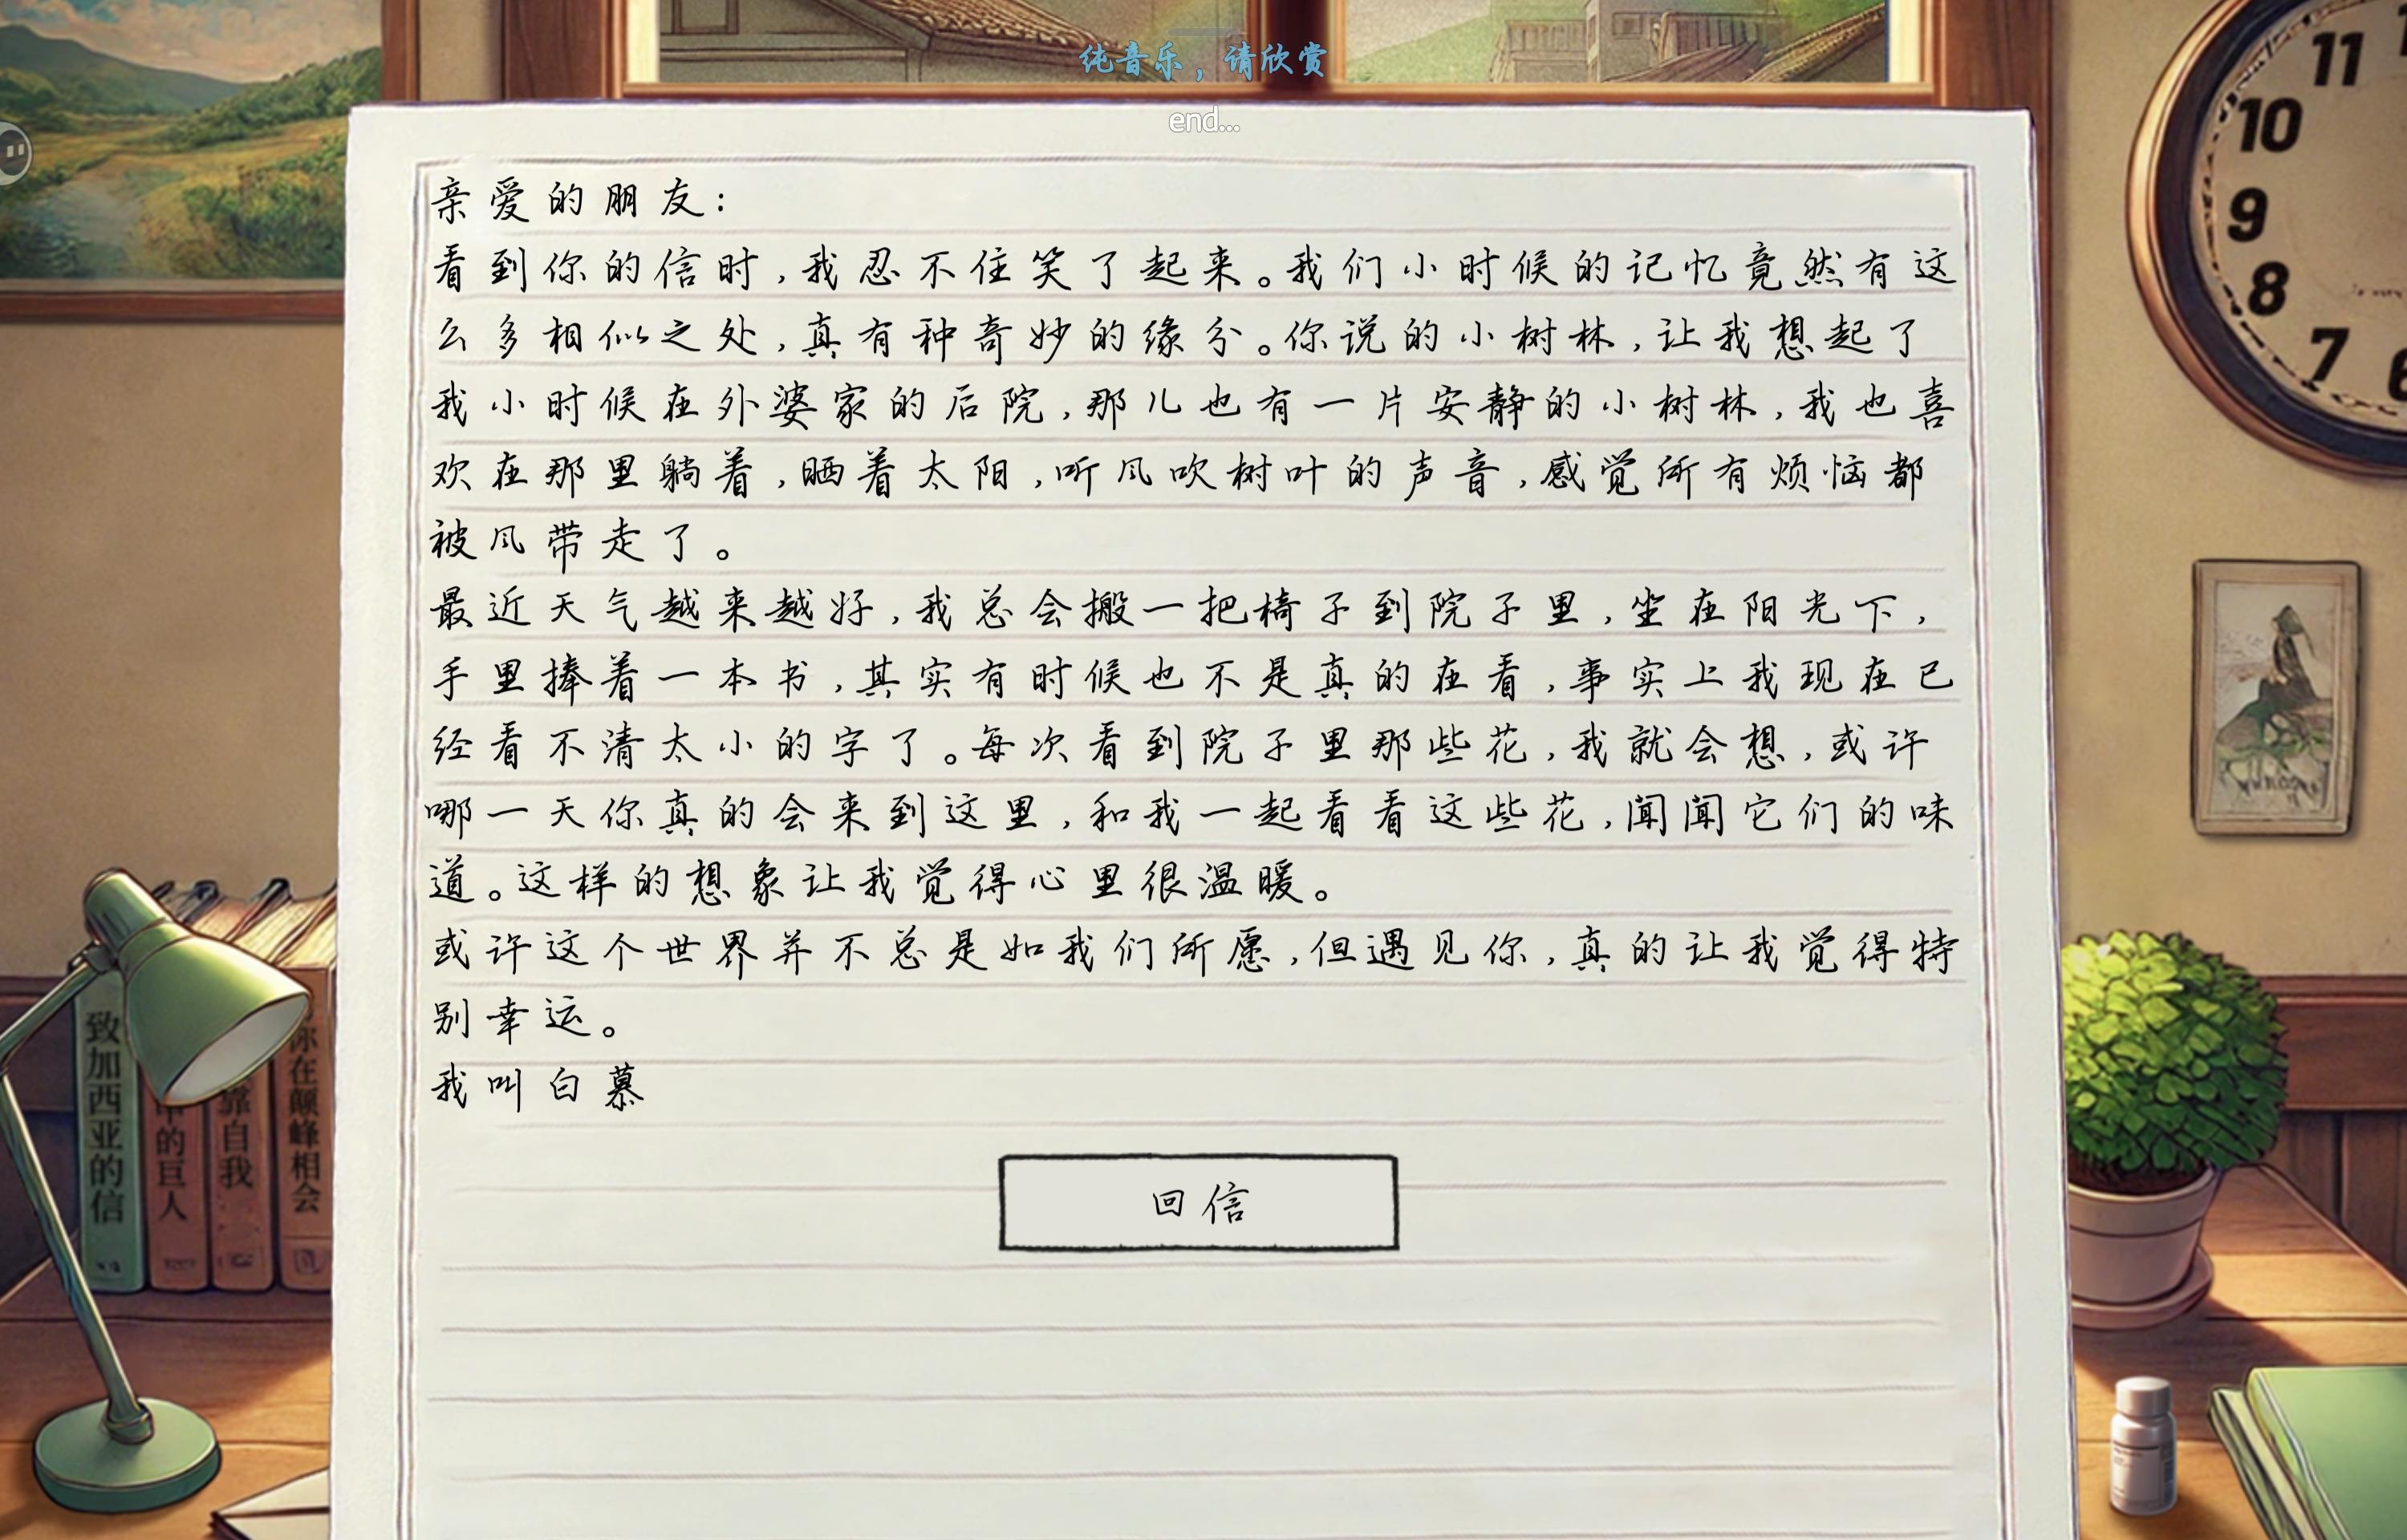 纯音乐，请欣赏
end...
亲爱的朋友：
看到你的信时，我忍不住笑了起来。我们小时候的记忆竟然有这
么多相似之处，真有种奇妙的缘分。你说的小树林，让我想起了
我小时候在外婆家的后院，那儿也有一片安静的小树林，我也喜
欢在那里躺着，晒着太阳，听风吹树叶的声音，感觉所有烦恼都
被风带走了。
最近天气越来越好，我总会搬一把椅子到院子里，坐在阳光下，
手里捧着一本书，其实有时候也不是真的在看，事实上我现在已
经看不清太小的字了。每次看到院子里那些花，我就会想，或许
哪一天你真的会来到这里，和我一起看看这些花，闻闻它们的味
道。这样的想象让我觉得心里很温暖。
或许这个世界并不总是如我们所愿，但遇见你，真的让我觉得特
别幸运。
我叫白慕
回信
11
10
9
8
7
6
致加西亚的信
的巨人
靠自我
你在颠峰相会